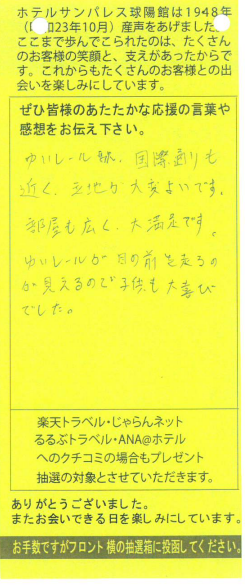 ホテルサンパレス球陽館は1948年
（昭和23年10月）産声をあげました。
ここまで歩んでこられたのは、たくさん
のお客様の笑顔と、支えがあったからで
す。これからもたくさんのお客様との出
会いを楽しみにしています。
ぜひ皆様のあたたかな応援の言葉や
感想をお伝え下さい。
ゆいレール駅、国際通りも
近く、立地が大変よいです。
部屋も広く、大満足です。
ゆいレールが目の前を走るの
が見えるので子供も大喜び
でした。
楽天トラベル・じゃらんネット
るるぶトラベル・ANA@ホテル
へのクチコミの場合もプレゼント
抽選の対象とさせていただきます。
ありがとうございました。
またお会いできる日を楽しみにしています。
お手数ですがフロント横の抽選箱に投函してください。